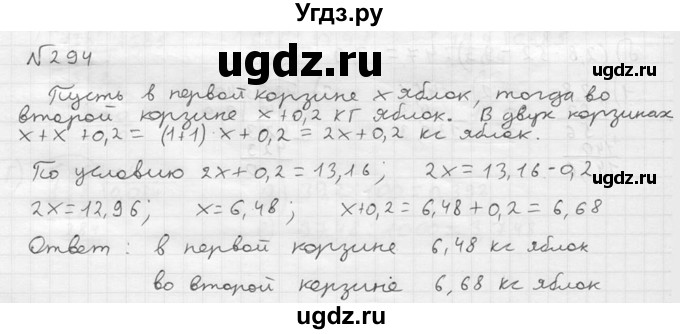 Угдз.ру
№294
Пусть в первой корзине x яблок, тогда во
второй корзине x+0,2 кг яблок. В двух корзинах
x+x+0,2 = (1+1)·x+0,2 = 2x+0,2 кг яблок.
По условию 2x+0,2 = 13,16; 2x = 13,16-0,2
2x=12,96; x=6,48; x+0,2 = 6,48+0,2 = 6,68
Ответ: в первой корзине 6,48 кг яблок
во второй корзине 6,68 кг яблок
ugdz.ru
ugdz.ru
ugdz.ru
ugdz.ru
ugdz.ru
ugdz.ru
ugdz.ru